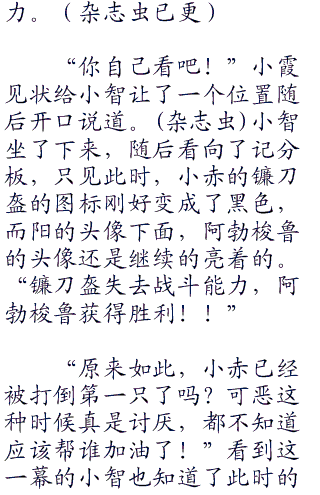 力。（杂志虫已更）
“你自己看吧！”小霞
见状给小智让了一个位置随
后开口说道。(杂志虫)小智
坐了下来，随后看向了记分
板，只见此时，小赤的镰刀
盔的图标刚好变成了黑色，
而阳的头像下面，阿勃梭鲁
的头像还是继续的亮着的。
“镰刀盔失去战斗能力，阿
勃梭鲁获得胜利！！”
“原来如此，小赤已经
被打倒第一只了吗？可恶这
种时候真是讨厌，都不知道
应该帮谁加油了！”看到这
一幕的小智也知道了此时的